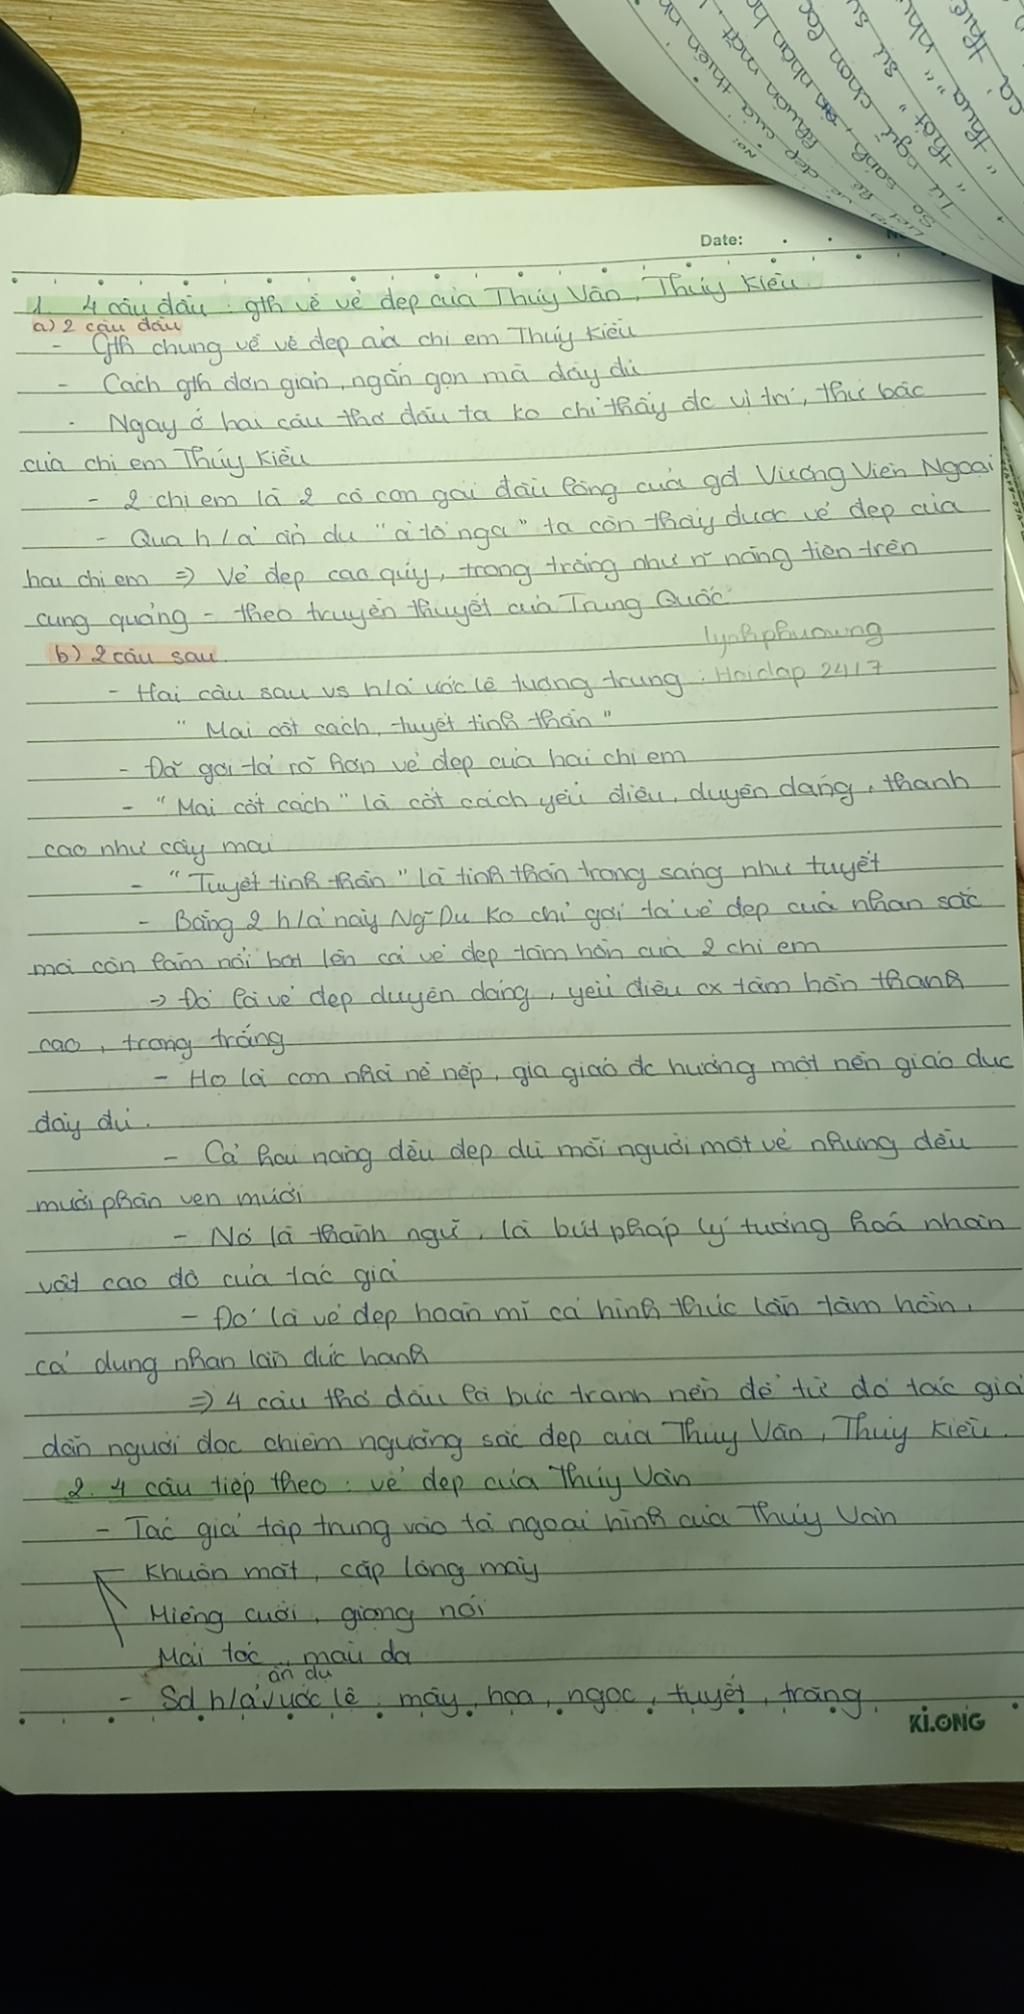 Date:
1. 4 câu đầu : gth về vẻ đẹp của Thúy Vân, Thúy Kiều.
a) 2 câu đầu
- Gth chung về vẻ đẹp của chị em Thúy Kiều
- Cách gth đơn giản, ngắn gọn mà đầy đủ
- Ngay ở hai câu thơ đầu ta ko chỉ thấy đc vị trí, thứ bậc
của chị em Thúy Kiều
- 2 chị em là 2 cô con gái đầu lòng của gđ Vương Viên Ngoại
- Qua h/ả ẩn dụ "ả tố nga" ta còn thấy được vẻ đẹp của
hai chị em => Vẻ đẹp cao quý, trong trắng như n~ nàng tiên trên
cung quảng - theo truyền thuyết của Trung Quốc
lynhphuowng
b) 2 câu sau.
- Hai câu sau vs h/ả ước lệ tượng trưng : Hoidap 2417
"Mai cốt cách, tuyết tinh thần"
- Đã gợi tả rõ hơn vẻ đẹp của hai chị em
- "Mai cốt cách" là cốt cách yểu điệu, duyên dáng, thanh
cao như cây mai
- "Tuyết tinh thần" là tinh thần trong sáng như tuyết
- Bằng 2 h/ả này Ng~ Du ko chỉ gợi tả vẻ đẹp của nhan sắc
mà còn làm nổi bật lên cả vẻ đẹp tâm hồn của 2 chị em
-> Đó là vẻ đẹp duyên dáng, yểu điệu cx tâm hồn thanh
cao, trong trắng
- Họ là con nhà nề nếp, gia giáo đc hưởng một nền giáo dục
đầy đủ.
- Cả hai nàng đều đẹp dù mỗi người một vẻ nhưng đều
mười phân vẹn mười
- Nó là thành ngữ, là bút pháp lý tưởng hoá nhân
vật cao độ của tác giả
- Đó là vẻ đẹp hoàn mĩ cả hình thức lẫn tâm hồn,
cả dung nhan lẫn đức hạnh
=> 4 câu thơ đầu là bức tranh nền để từ đó tác giả
dẫn người đọc chiêm ngưỡng sắc đẹp của Thúy Vân, Thúy Kiều.
2. 4 câu tiếp theo : vẻ đẹp của Thúy Vân
- Tác giả tập trung vào tả ngoại hình của Thúy Vân
Khuôn mặt, cặp lông mày
Miệng cười, giọng nói
Mái tóc, màu da
ẩn dụ
- Sd h/ả v ước lệ : mây, hoa, ngọc, tuyết, trăng
KLONG